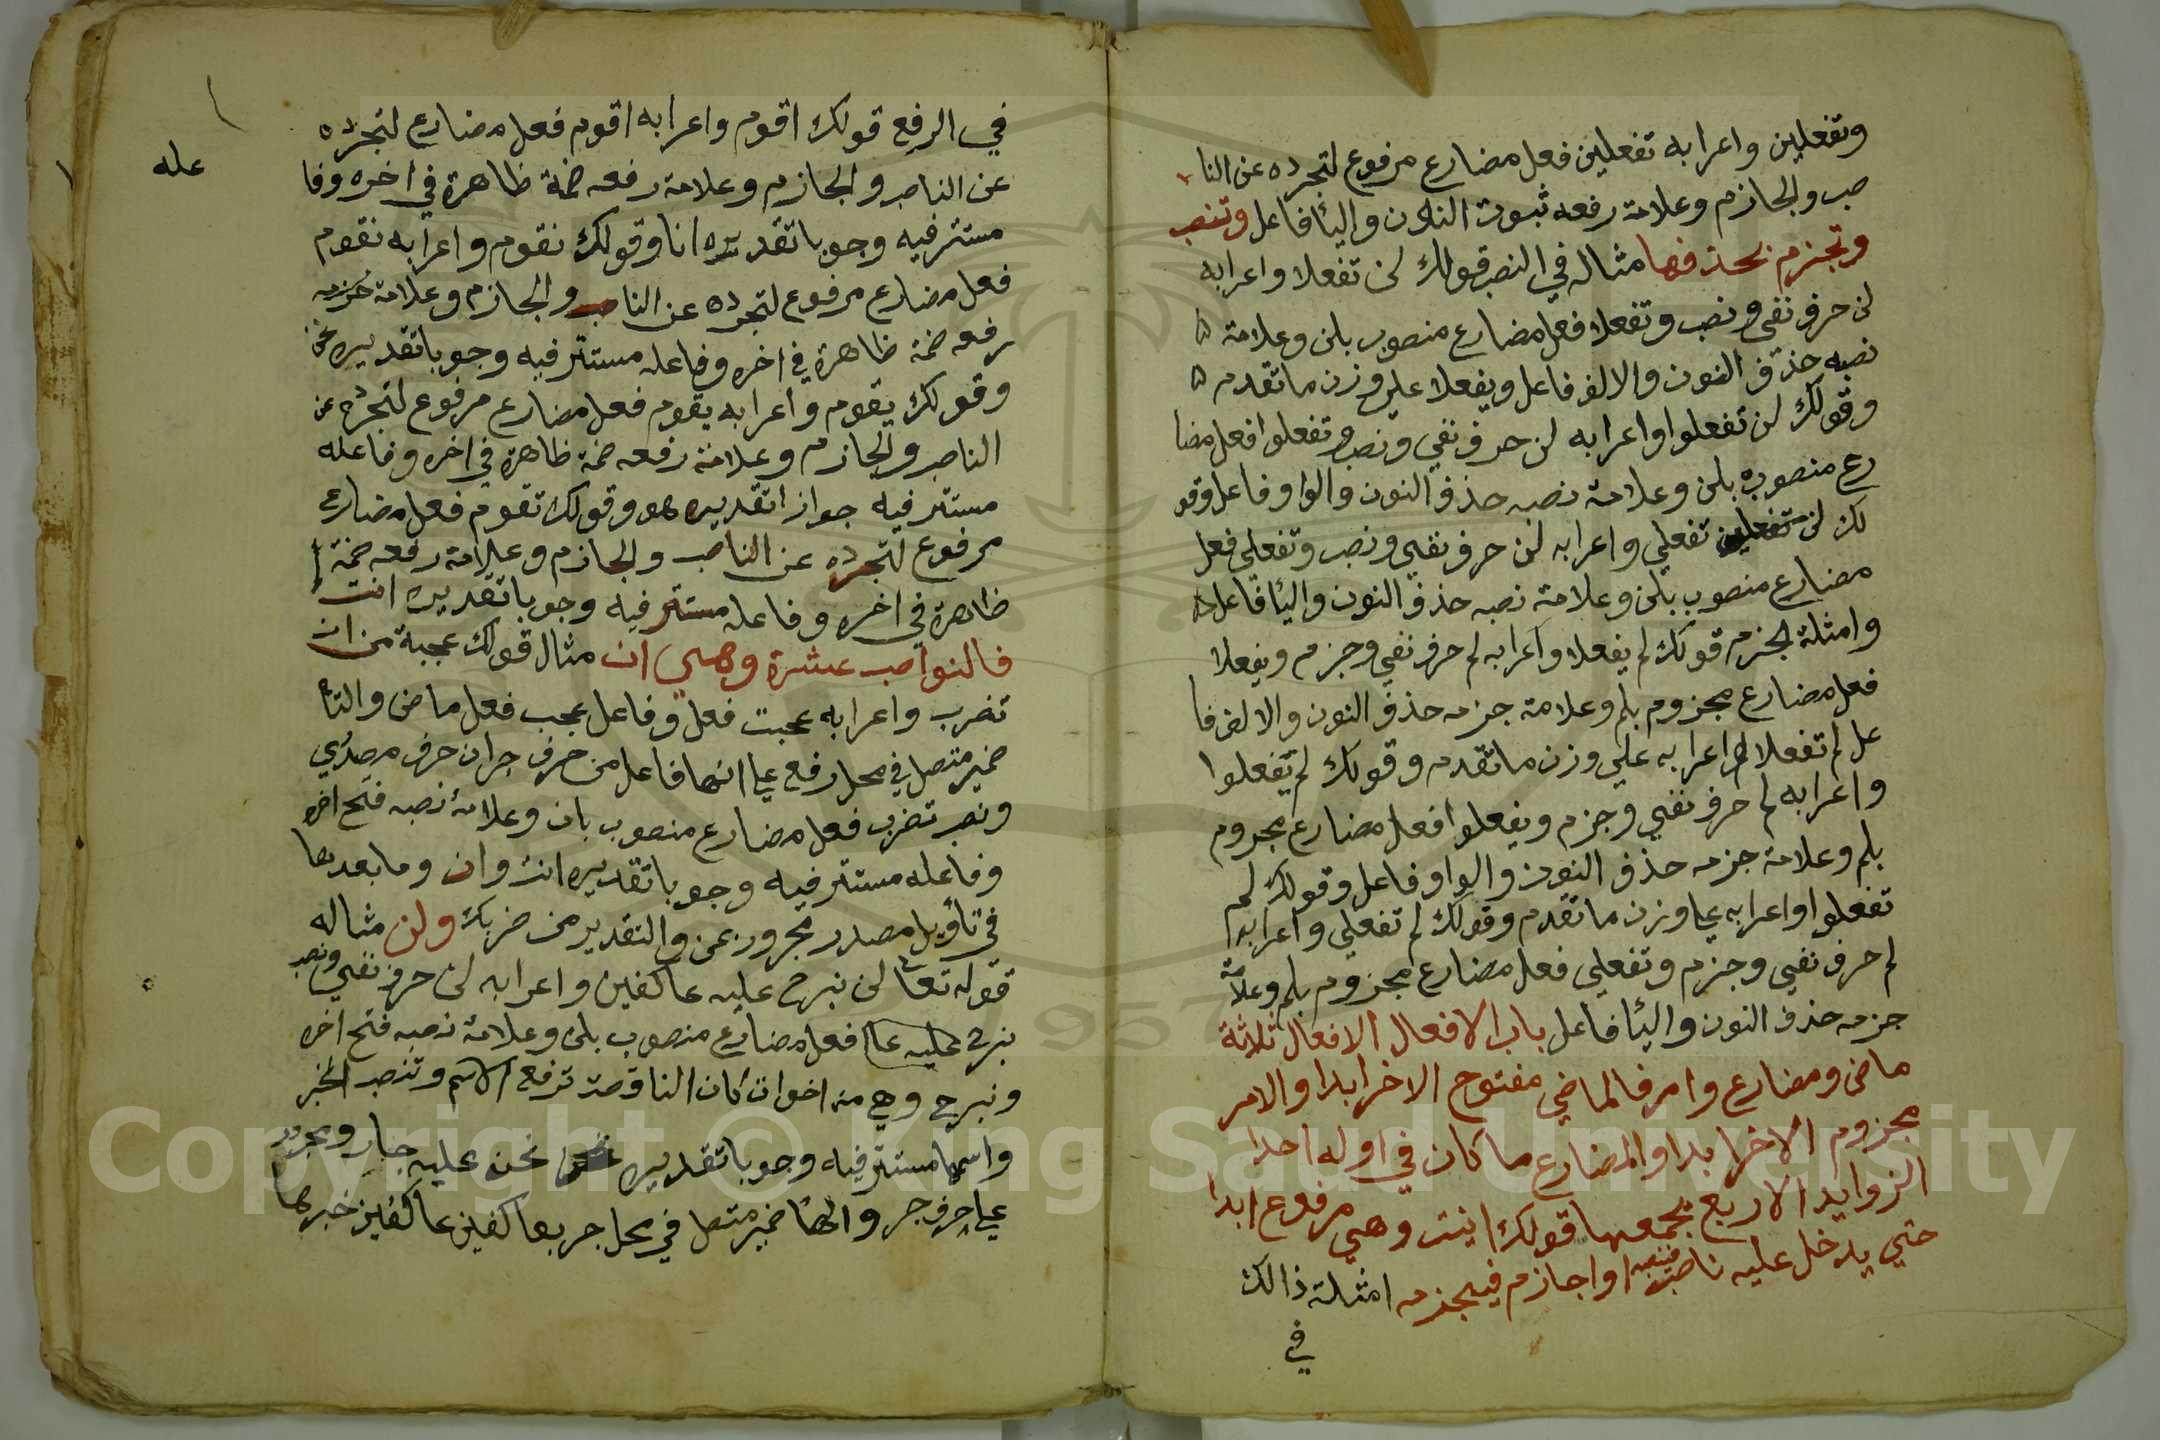 وتفعلين واعرابه تفعلين فعل مضارع مرفوع لتجرده عن النا
صب والجازم وعلامة رفعه ثبوت النون واليا فاعل وتنصب
وتجزم بحذفها مثاله في النصب قولك لن تفعلا واعرابه
لن حرف نفي ونصب وتفعلا فعل مضارع منصوب بلن وعلامة
نصبه حذف النون والالف فاعل ويفعلا على وزن ما تقدم
وقولك لن تفعلوا واعرابه لن حرف نفي ونصب وتفعلوا فعل مضا
رع منصوب بلن وعلامة نصبه حذف النون والواو فاعل وقو
لك لن تفعلي واعرابه لن حرف نفي ونصب وتفعلي فعل
مضارع منصوب بلن وعلامة نصبه حذف النون واليا فاعل
وامثلة الجزم قولك لم يفعلا واعرابه لم حرف نفي وجزم ويفعلا
فعل مضارع مجزوم بلم وعلامة جزمه حذف النون والالف فا
عل لم تفعلا اعرابه على وزن ما تقدم وقولك لم يفعلوا
واعرابه لم حرف نفي وجزم ويفعلوا فعل مضارع مجزوم
بلم وعلامة جزمه حذف النون والواو فاعل وقولك لم
تفعلوا واعرابه على وزن ما تقدم وقولك لم تفعلي واعرابه
لم حرف نفي وجزم وتفعلي فعل مضارع مجزوم بلم وعلامة
جزمه حذف النون واليا فاعل باب الافعال الافعال ثلاثة
ماض ومضارع وامر فالماضي مفتوح الاخر ابدا والامر
مجزوم الاخر ابدا والمضارع ما كان في اوله احدا
الزوايد الاربع يجمعها قولك انيت وهي مرفوع ابدا
حتي يدخل عليه ناصب فينصبه او جازم فيجزمه امثلة ذالك
في
في الرفع قولك اقوم واعرابه اقوم فعل مضارع لتجرده
عن الناصب والجازم وعلامة رفعه ضمة ظاهرة في اخره وفا
عله
مستتر فيه وجوبا تقديره انا وقولك نقوم واعرابه نقوم
فعل مضارع مرفوع لتجرده عن الناصب والجازم وعلامة جزمه
رفعه ضمة ظاهرة في اخره وفاعله مستتر فيه وجوبا تقديره نحن
وقولك يقوم واعرابه يقوم فعل مضارع مرفوع لتجرده عن
الناصب والجازم وعلامة رفعه ضمة ظاهرة في اخره وفاعله
مستتر فيه جوازا تقديره هو وقولك تقوم فعل مضارع
مرفوع لتجرده عن الناصب والجازم وعلامة رفعه ضمة
ظاهرة في اخره وفاعله مستتر فيه وجوبا تقديره انت
فالنواصب عشرة وهي ان مثال قولك عجبة من ان
تضرب واعرابه عجبت فعل وفاعل عجب فعل ماض والتا
ضمير متصل في محل رفع على انها فاعل من حرف جر ان حرف مصدري
ونصب تضرب فعل مضارع منصوب بان وعلامة نصبه فتح اخره
وفاعله مستتر فيه وجوبا تقديره انت وان وما بعدها
في تأويل مصدر مجرور بمن والتقدير من ضربك ولن مثاله
قوله تعا لن نبرح عليه عاكفين واعرابه لن حرف نفي ونصب
نبرح عليه عا فعل مضارع منصوب بلن وعلامة نصبه فتح اخره
ونبرح وهي من اخوات كان الناقصة ترفع الاسم وتنصب الخبر
واسمها مستتر فيه وجوبا تقديره نحن عليه جار ومجرور
على حرف جر والها ضمير متصل في محل جر بعاكفين عاكفين خبرها
Copyright © King Saud University
1957